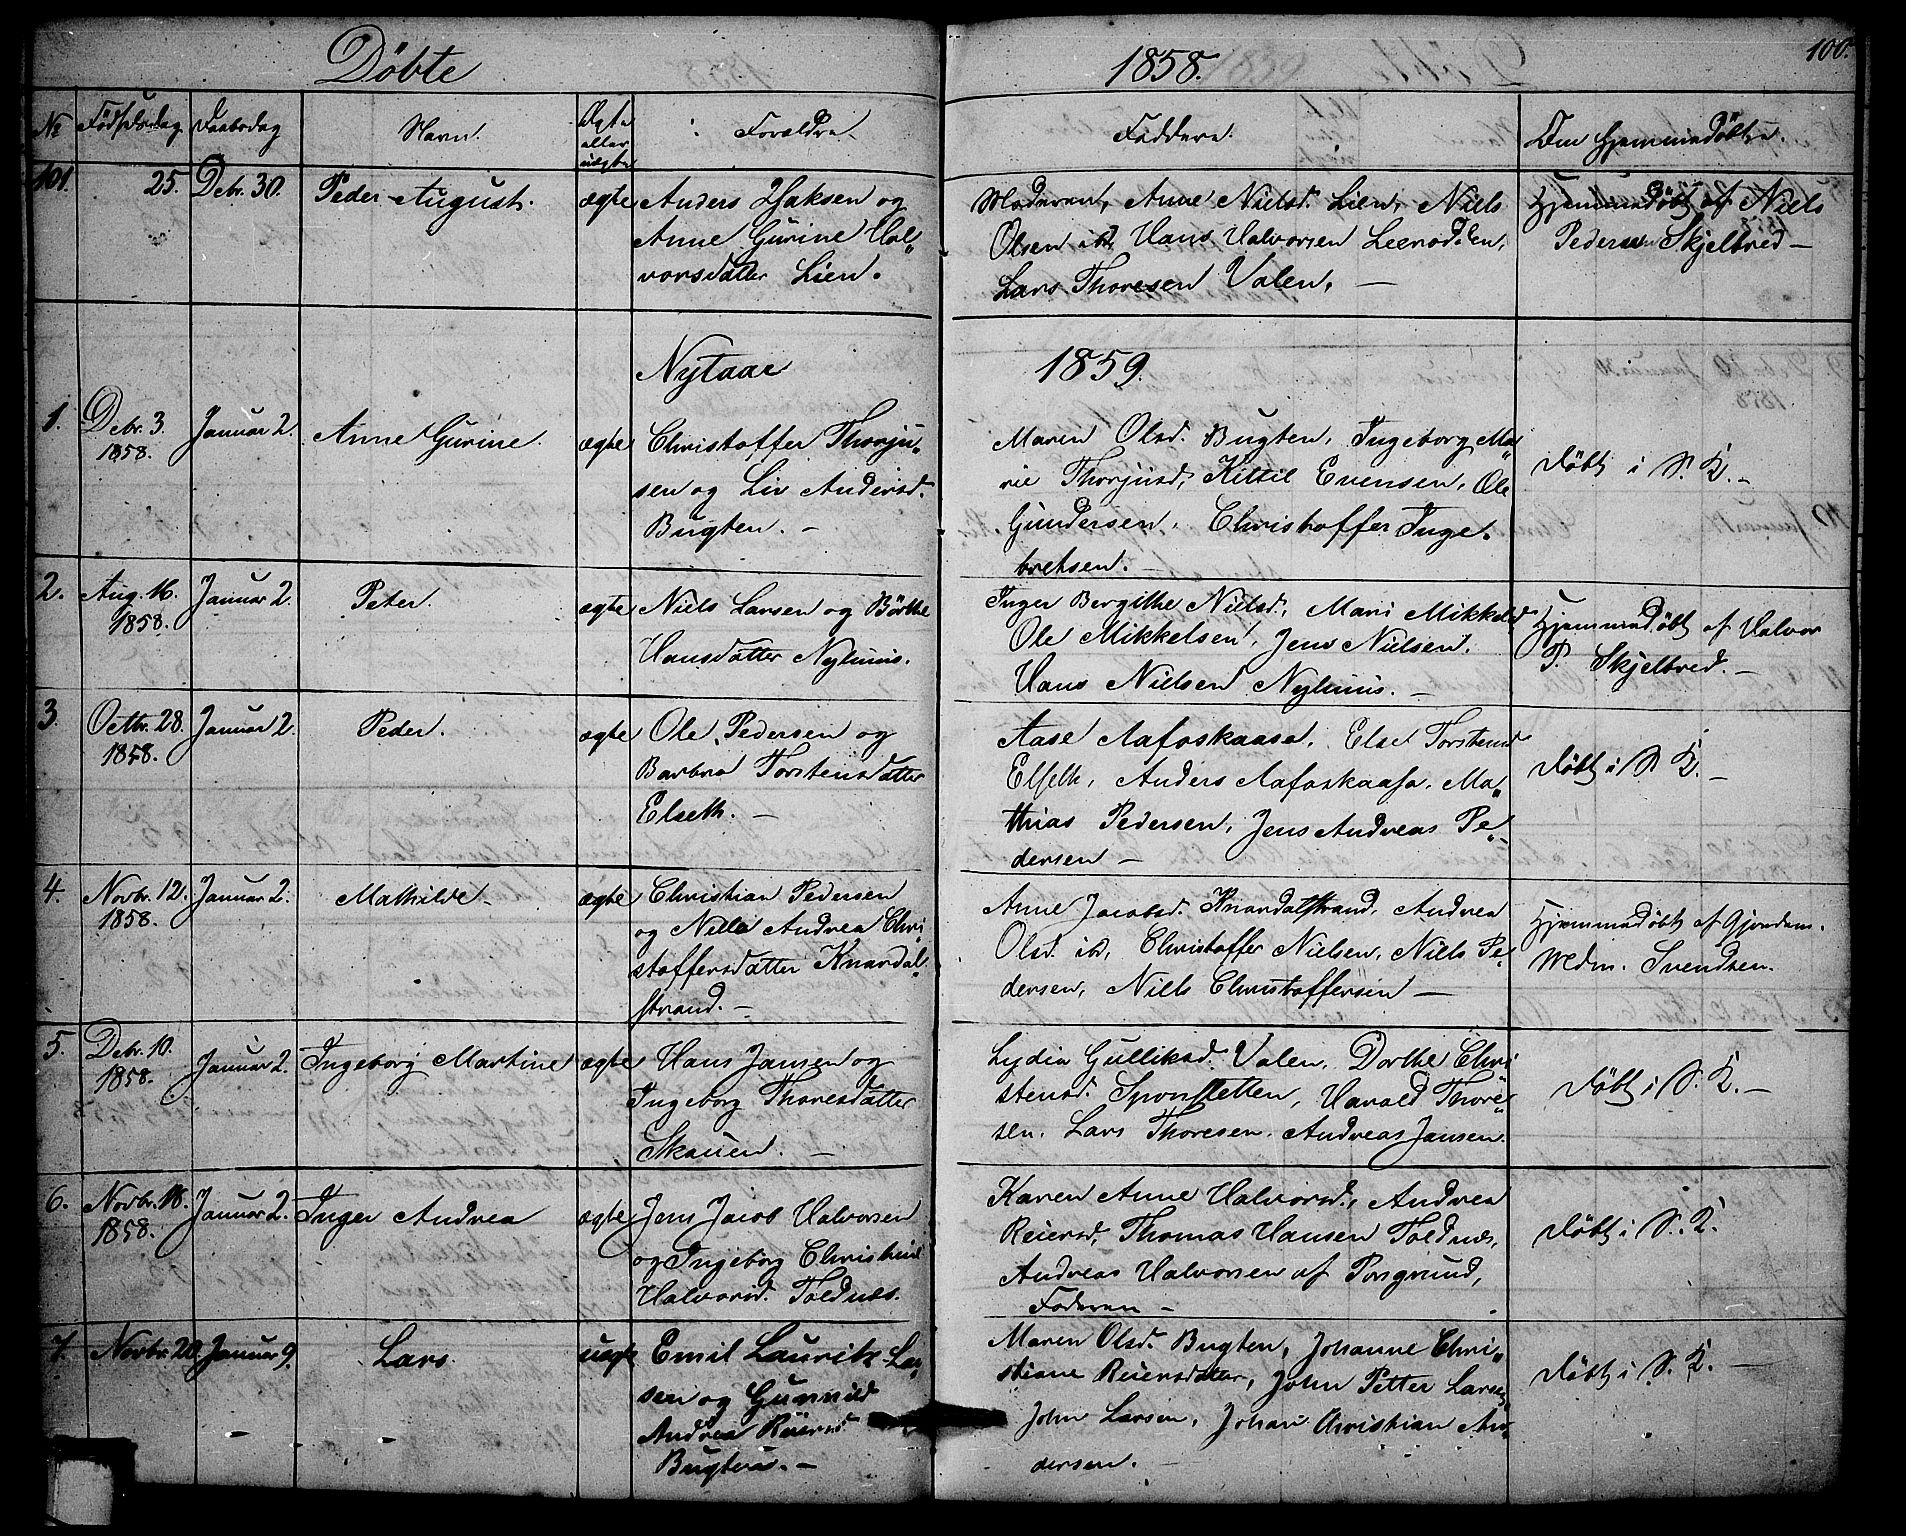 Döbte
1858.
100.
No
Födselsdag
Daabsdag
Navn.
Ægte
eller
uægte
Forældre.
Faddere.
Om hjemmedöbt
101.
25.
Debr. 30.
Peder August.
ægte
Anders Isaksen og
Anne Gurine Hal„
vorsdatter Lien.
Moderen, Anne Nielsd. Lien, Niels
Olsen ibd, Hans Halvorsen
Lars Thoresen Valen, —
Hjemmedöbt af Niels
Pedersen Skjelbred —
Nytaar
1859.
1.
Debr. 3.
1858.
Januar 2.
Anne Gurine.
ægte
Christoffer Thorju„
sen og Liv Andersd.
Bugten. —
Maren Olsd. Bugten, Ingeborg Ma„
rie Thorjusd, Kittil Evensen, Ole
Gundersen, Christoffer Inge„
bretsen. —
Döbt i S. K. —
2.
Aug. 16.
1858.
Januar 2.
Peter.
ægte
Niels Larsen og Börthe
Hansdatter Nyhuus.
Inger Bergithe Nielsd., Mari Mikkelsd
Ole Mikkelsen, Jens Nielsen.
Hans Nielsen Nyhuus. —
Hjemmedöbt af Halvor
P. Skjelbred. —
3.
Octbr. 28.
1858.
Januar 2.
Peder.
ægte
Ole Pedersen og
Barbra Torstensdatter
Elseth. —
Aase Aafoskaasa, Else Torstensd
Elseth, Anders Aafoskaasa, Ma„
thias Pedersen, Jens Andreas Pe„
dersen —
Döbt i S. K. —
4.
Novbr. 12.
1858.
Januar 2.
Mathilde —
ægte
Christian Pedersen
og Nella Andrea Chri„
stoffersdatter Knardal„
strand. —
Anne Jacobsd. Knardalstrand, Andrea
Olsd. ibd, Christoffer Nielsen, Niels Pe„
dersen, Niels Christoffersen —
Hjemmedöbt af Gjordem.
Mdm. Svendsen.
5.
Debr. 10.
1858.
Januar 2.
Ingeborg Martine
ægte
Hans Jansen og
Ingeborg Thoresdatter
Skauen. —
Lydia Gulliksd. Valen, Dorthe Chri„
stensd. Harald Thore„
sen. Lars Thoresen. Andreas Jansen.
Döbt i S. K. —
6.
Novbr. 18.
1858.
Januar 2.
Inger Andrea
ægte
Jens Jacob Halvorsen
og Ingeborg Christine
Halvorsd. Toldnæs.
Karen Anne Halvorsd., Andrea
Reiersd, Thomas Hansen Toldnæs,
Andreas Halvorsen af Porsgrund,
Faderen —
Döbt i S. K.
7.
Novbr. 20
Januar 9.
Lars.
uægte
Emil Lauritz Lar„
sen og Gunnild
Andrea Reiersd
Bugten. —
Maren Olsd. Bugten, Johanne Chri„
stiane Reiersdatter, John Petter Larsen,
John Larsen, Johan Christian An„
dersen. —
Döbt i S. K. —